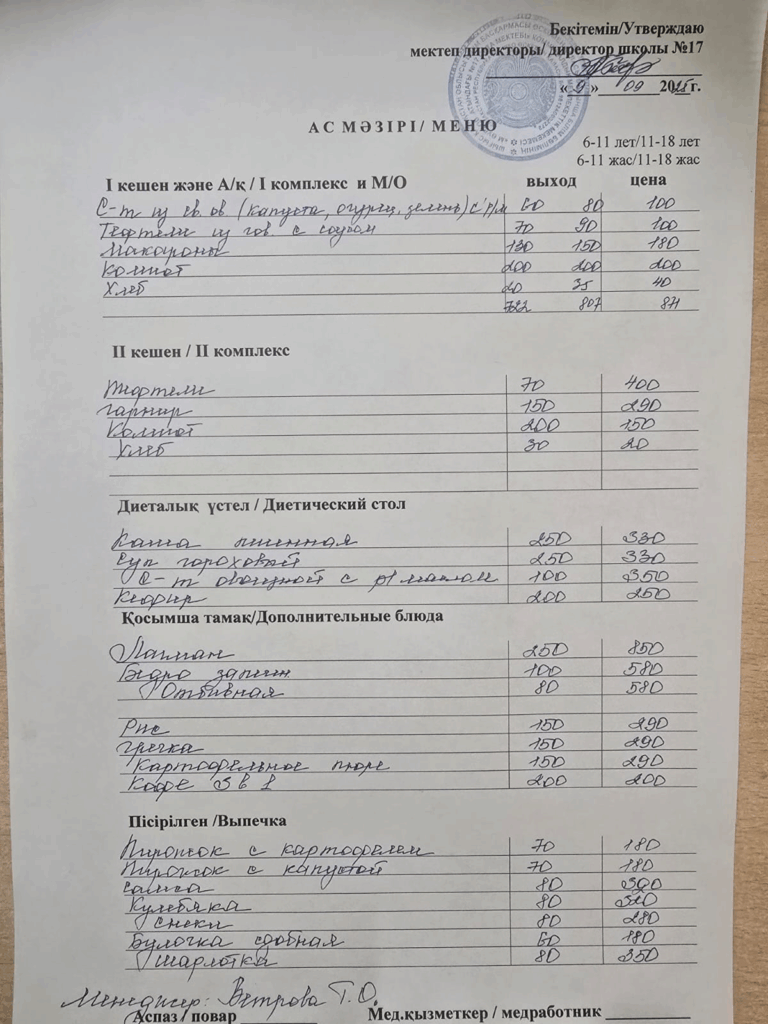 Бекітемін/Утверждаю
мектеп директоры/ директор школы №17
«9» 09 2025г.
АС МӘЗІРІ/ МЕНЮ
6-11 лет/11-18 лет
6-11 жас/11-18 жас
I кешен және А/қ / I комплекс и М/О выход цена
С-т из св. ов. (капуста, огурец, зелень) с р/м 60 80 100
Тефтели из гов. с соусом 70 90 100
Макароны 130 150 180
Компот 200 200 200
Хлеб 20 35 40
722 807 871
II кешен / II комплекс
Тефтели 70 400
гарнир 150 290
Компот 200 150
Хлеб 30 20
Диеталық үстел / Диетический стол
Каша пшенная 250 330
Суп гороховый 250 330
С-т овощной с р/маслом 100 350
Кефир 200 250
Қосымша тамақ/Дополнительные блюда
Лагман 250 850
Бедро запечн 100 580
Отбивная 80 580
Рис 150 290
гречка 150 290
Картофельное пюре 150 290
Кофе 3 в 1 200 200
Пісірілген /Выпечка
Пирожок с картофелем 70 180
Пирожок с капустой 70 180
Самса 80 320
Кулебяка 80 320
Снеки 80 280
Булочка сдобная 60 180
Шарлотка 80 350
Менеджер: Ветрова Т.О.
Аспаз / повар Мед.қызметкер / медработник